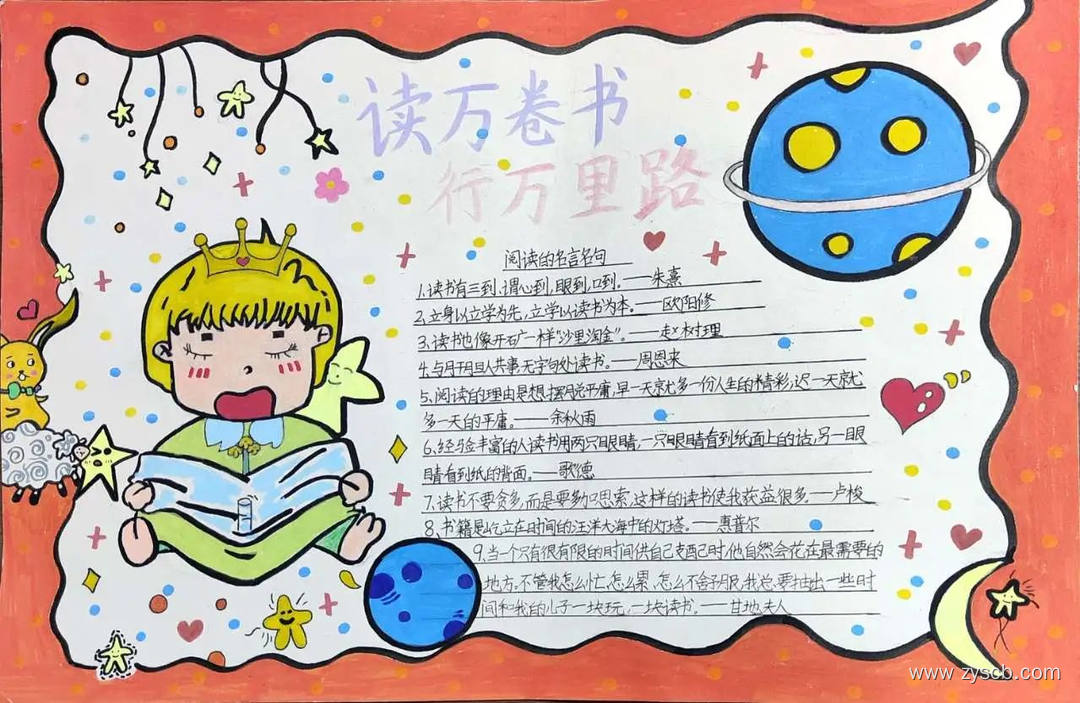 读万卷书
行万里路
阅读的名言名句
1.读书有三到,谓心到,眼到,口到。——朱熹
2.立身以立学为先,立学以读书为本。——欧阳修
3.读书也像开矿一样"沙里淘金"。——赵树理
4.与有肝胆人共事,无字句处读书。——周恩来
5.阅读的理由是想摆脱平庸,早一天就多一份人生的精彩,迟一天就
多一天的平庸。——余秋雨
6.经验丰富的人读书用两只眼睛,一只眼睛看到纸面上的话,另一眼
睛看到纸的背面。——歌德
7.读书不要贪多,而是要多加思索,这样的读书使我获益很多。——卢梭
8.书籍是屹立在时间的汪洋大海中的灯塔。——惠普尔
9.当一个只有很有限的时间供自己支配时,他自然会花在最需要的
地方,不管我怎么忙,怎么累,怎么不舍舒服,我总要抽出一些时
间和我的儿子一块玩,一块读书。——甘地夫人
www.zyscb.com